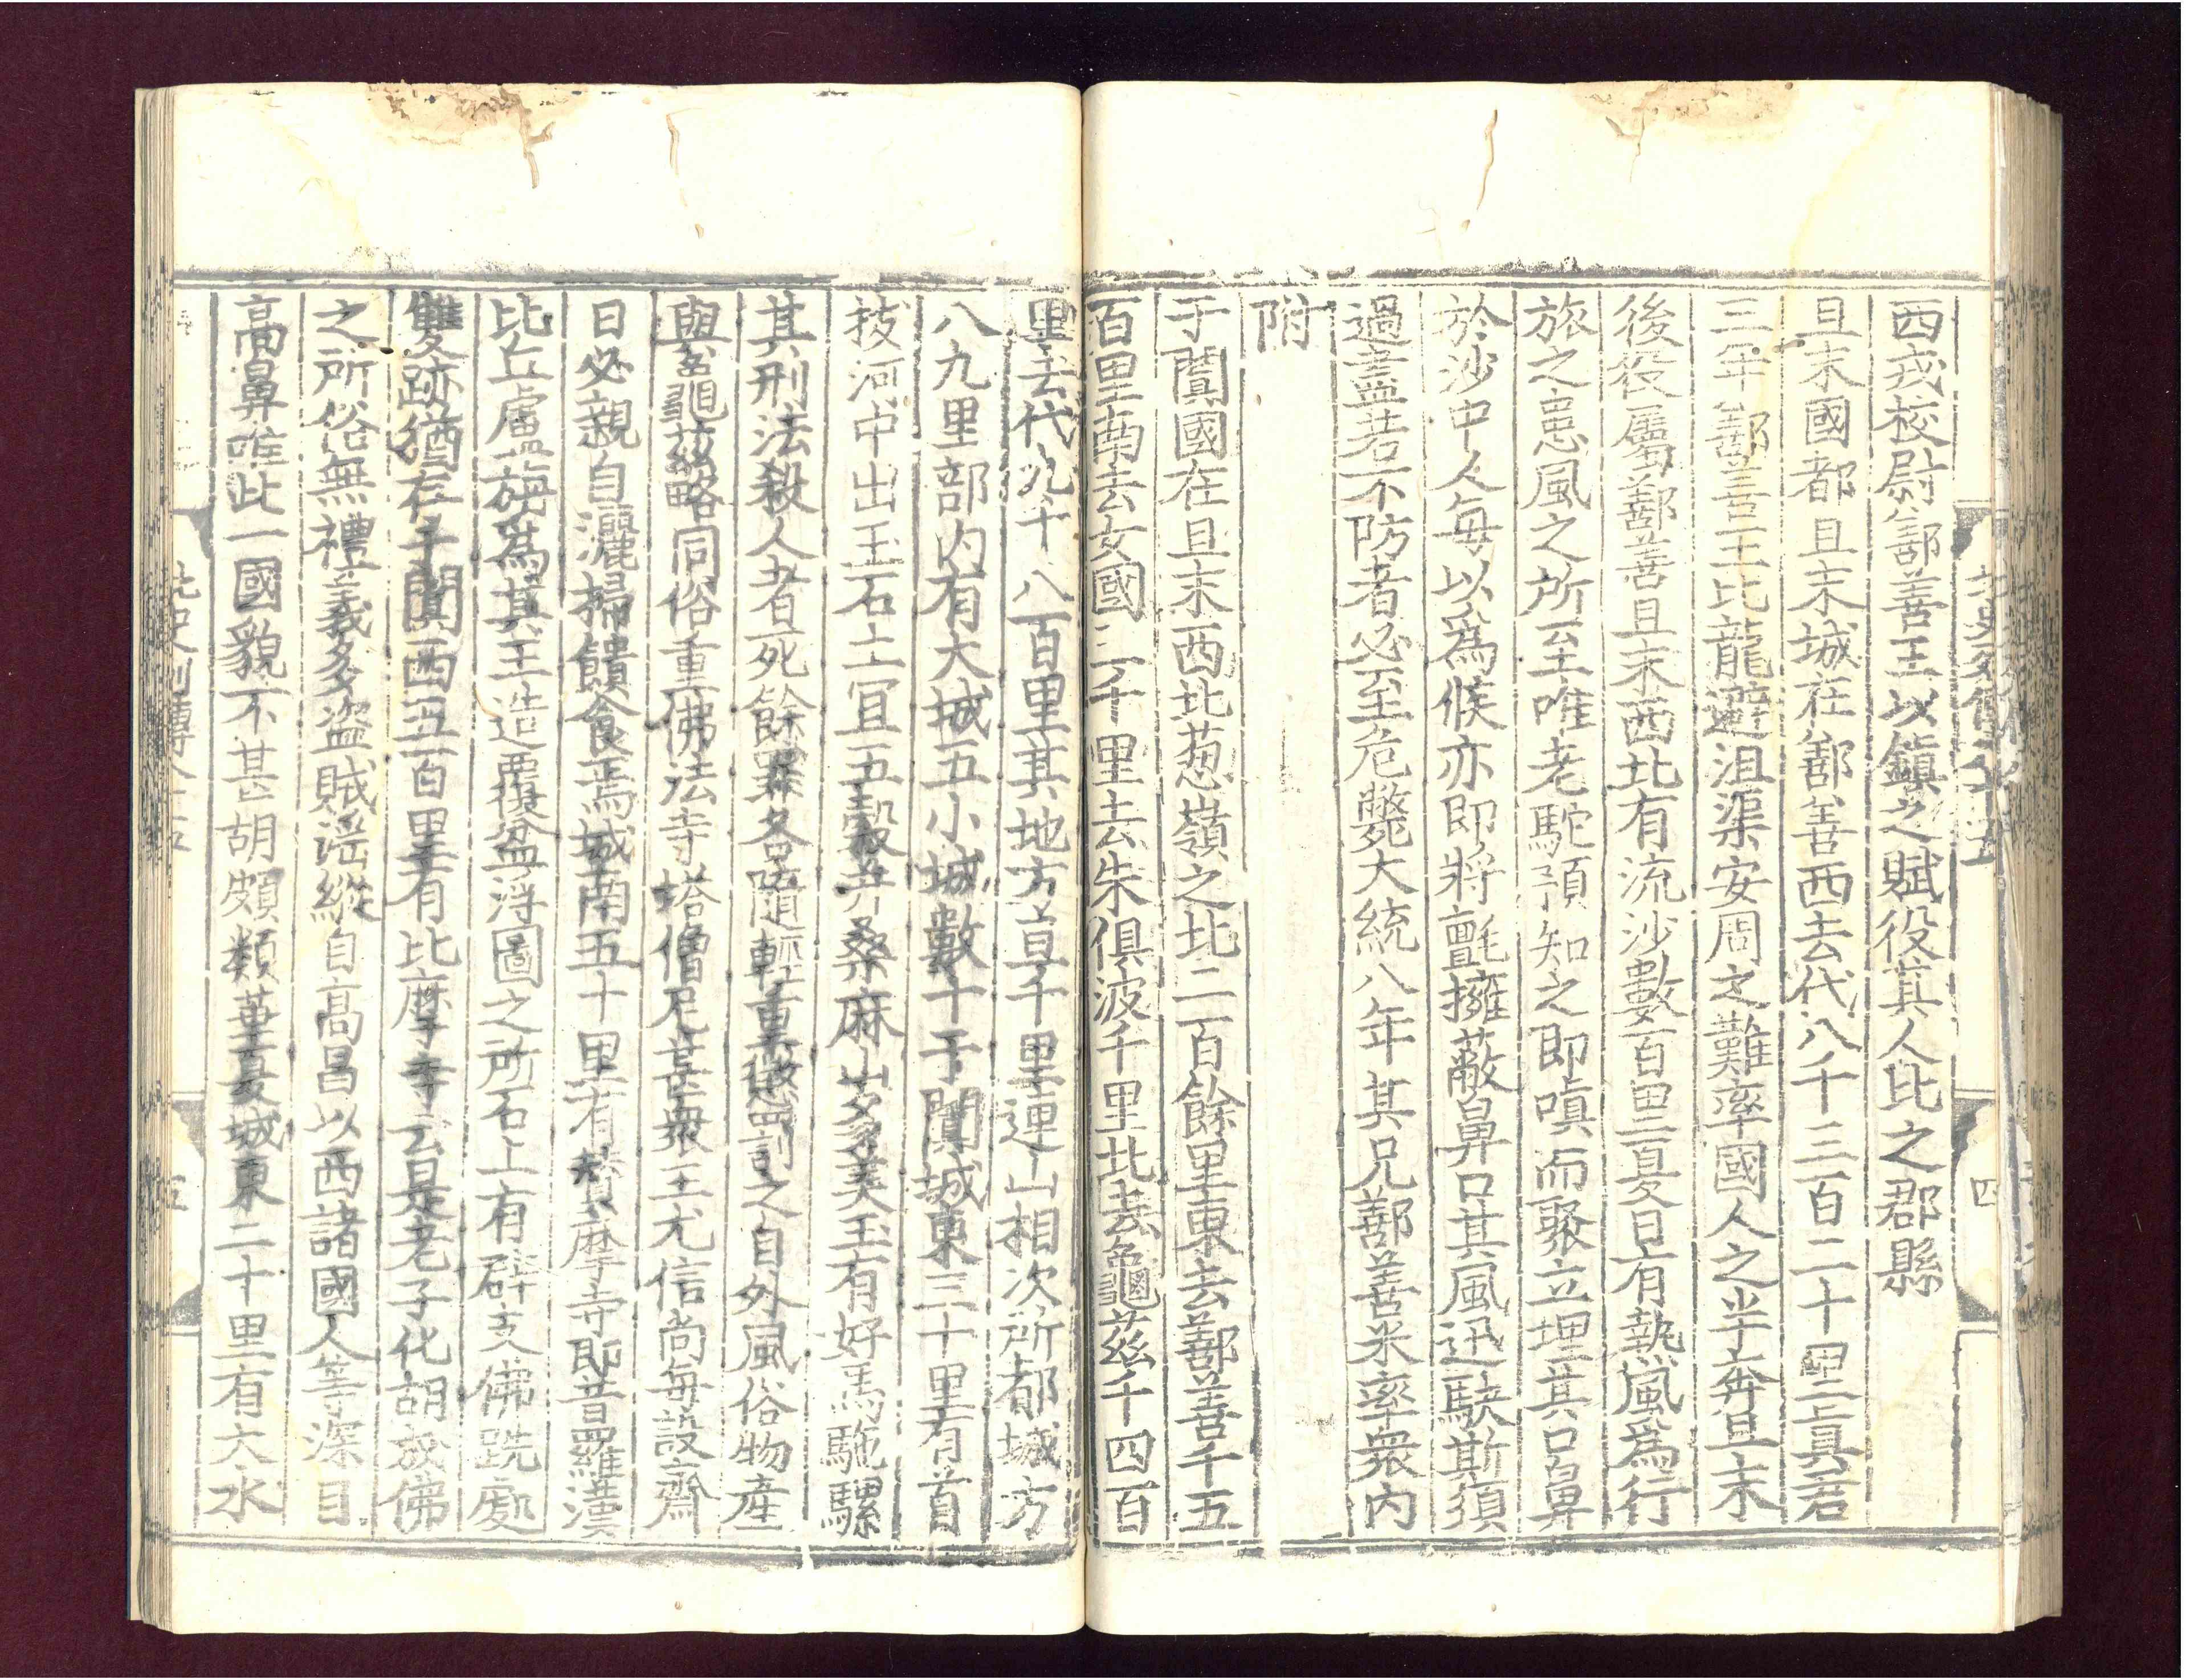 西戎校尉鄯善王以鎮之賦役其人比之郡縣
且末國都且末城在鄯善西去代八千三百二十里真君
三年鄯善王比龍避沮渠安周之難率國人之半奔且末
後役屬鄯善且末西北有流沙數百里夏日有熱風爲行
旅之患風之所至唯老駝預知之即嗔而聚立埋其口鼻
於沙中人每以爲候亦即將氈擁蔽鼻口其風迅駃斯須
過盡若不防者必至危斃大統八年其兄鄯善米率衆內
附
于闐國在且末西北葱嶺之北二百餘里東去鄯善千五
百里南去女國三千里去朱俱波千里北去龜茲千四百
里去代九千八百里其地方亘千里連山相次所都城方
八九里部内有大城五小城數十于闐城東三十里有首
拔河中出玉石土宜五穀并桑麻山多美玉有好馬駞騾
其刑法殺人者死餘罪各隨輕重懲罰之自外風俗物產
與龜茲略同俗重佛法寺塔僧尼甚衆王尤信尚每設齋
日必親自灑掃饋食焉城南五十里有贊摩寺即昔羅漢
比丘盧旃爲其王造覆盆浮圖之所石上有辟支佛跣處
雙跡猶存于闐西五百里有比摩寺云是老子化胡成佛
之所俗無禮義多盜賊淫縱自高昌以西諸國人等深目
高鼻唯此一國貌不甚胡頗類華夏城東二十里有大水
北史列傳八十五
四
五